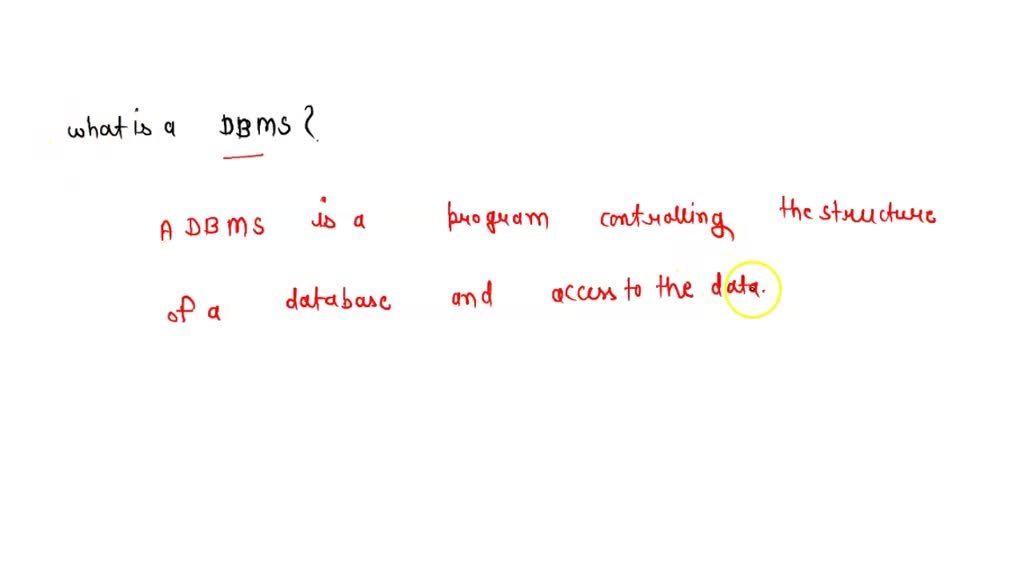 what is a DBMS?
A DBMS is a program controlling the structure
of a database and access to the data.